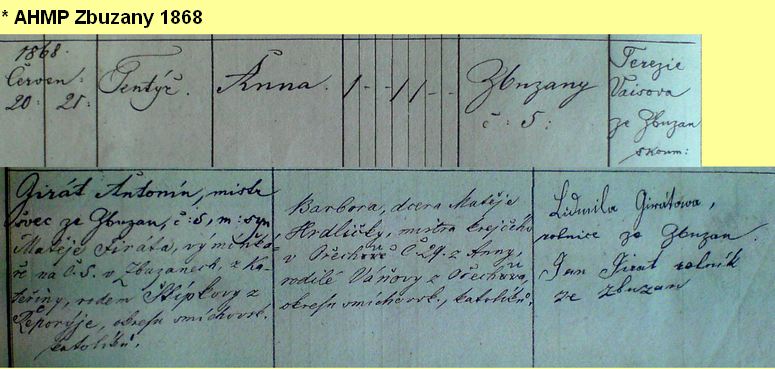 * AHMP Zbuzany 1868
1868.
Červen
20: 21:
Tentýž.
Anna.
1 - - 1 1 - -
Zbuzany
č: 5:
Terezie
Vaisova
ze Zbuzan
zkoum:
Girát Antonín, mistr
švec ze Zbuzan, č: 5, m: syn
Matěje Firata, výměnká-
ře na č. 5. v Zbuzanech, z Ka-
teřiny, rodem Štípkovy z
Řeporyje, okresu smíchovsk.
katolíků.
Barbora, dcera Matěje
Hrdličky, mistra krejčího
v Ořechově č. 24. z Anny,
rodilé Váňovy z Ořechova,
okresu smíchovsk., katolíků.
Lidmila Girátowa,
rolnice ze Zbuzan.
Jan Girat rolník
ze Zbuzan